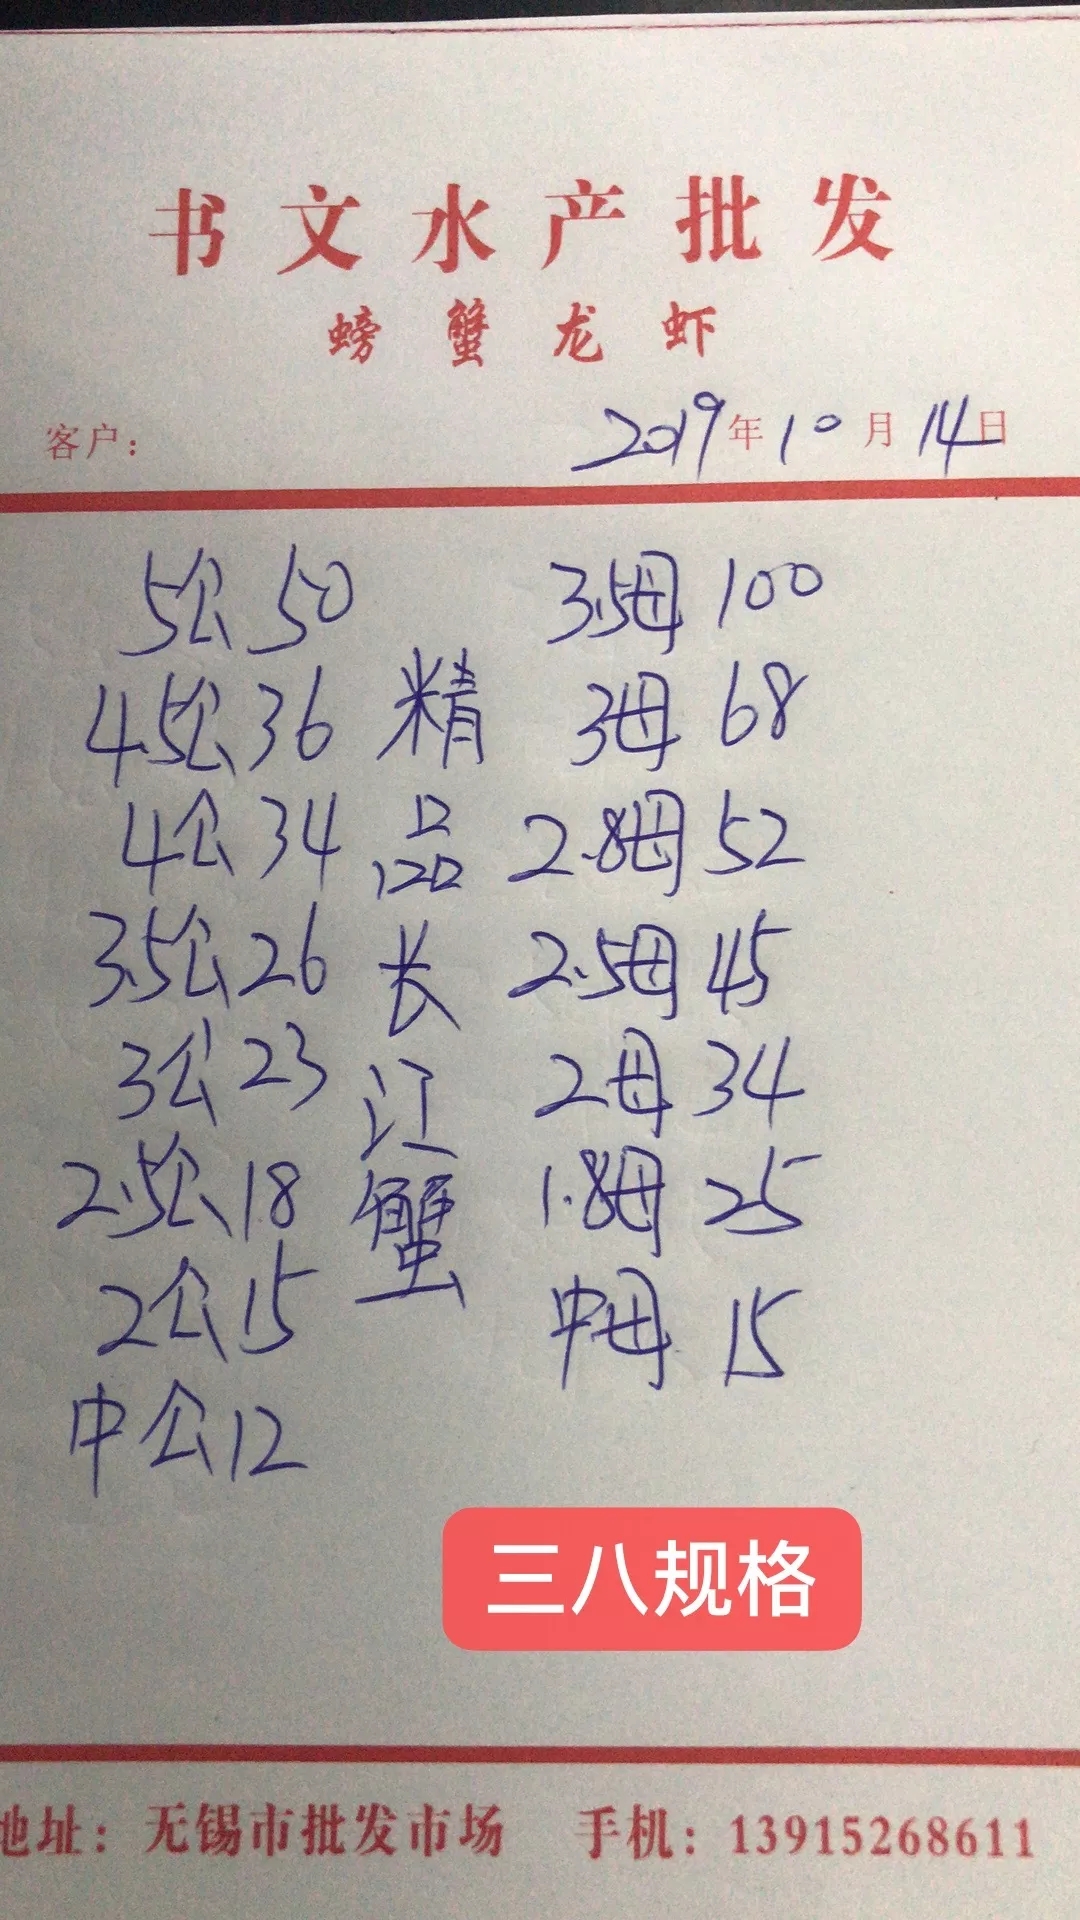 书文水产批发
螃蟹龙虾
客户： 2019年10月14日
5公 50
4.5公 36
4公 34
3.5公 26
3公 23
2.5公 18
2公 15
中公 12
精品长江蟹
3.5母 100
3母 68
2.8母 52
2.5母 45
2母 34
1.8母 25
中母 15
三八规格
地址：无锡市批发市场 手机：13915268611